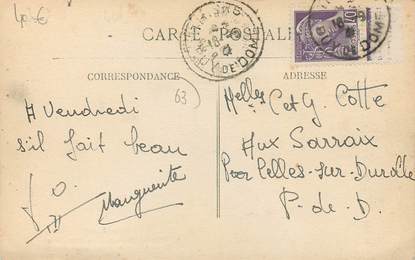 40€
CARTE POSTALE
PUY-DE-DOME
CORRESPONDANCE
ADRESSE
63
à Vendredi
s'il fait beau
Marguerite
Melles C et G. Cotte
Aux Sarraix
Par Celles-sur-Durolle
P.-de-D.